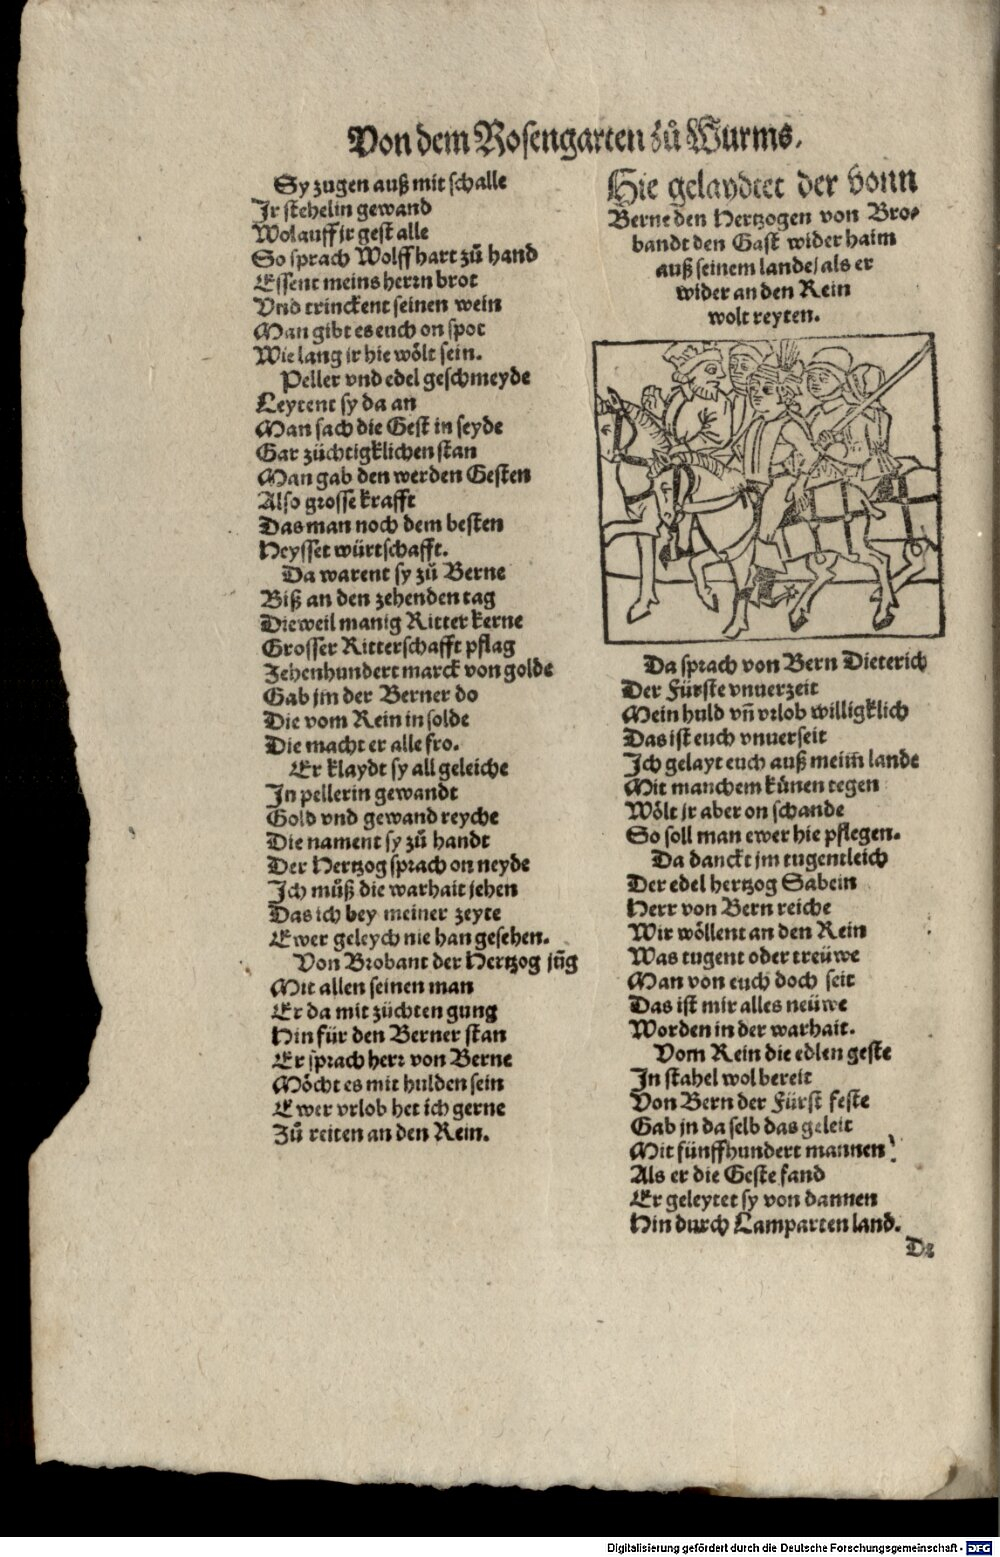 Von dem Rosengarten zů Wurms.
Sy zugen auß mit schalle
Jr stehelin gewand
Wolauff jr gest alle
So sprach Wolff hart zů hand
Essent meins herrn brot
Vnd trinckent seinen wein
Man gibt es euch on spot
Wie lang jr hie wölt sein.
Peller vnd edel geschmeyde
Leytent sy da an
Man sach die Gest in seyde
Gar züchtigklichen stan
Man gab den werden Gesten
Also grosse krafft
Das man noch dem besten
Heysset würtschafft.
Da warent sy zů Berne
Biß an den zehenden tag
Die weil manig Ritter kerne
Grosser Ritterschafft pflag
Zehenhundert marck von golde
Gab jm der Berner do
Die vom Rein in solde
Die macht er alle fro.
Er klaydt sy all geleiche
In pellerin gewandt
Gold vnd gewand reyche
Die nament sy zů handt
Der Hertzog sprach on neyde
Ich můß die warhait jehen
Das ich bey meiner zeyte
Ewer geleych nie han gesehen.
Von Brobant der Hertzog jūg
Mit allen seinen man
Er da mit züchten gung
Hin für den Berner stan
Er sprach herr von Berne
Möcht es mit hulden sein
Ewer vrlob het ich gerne
Zů reiten an den Rein.
Hie gelaydtet der vonn
Berne den Hertzogen von Bro-
bandt den Gast wider haim
auß seinem lande/ als er
wider an den Rein
wolt reyten.
Da sprach von Bern Dieterich
Der Fürste vnuerzeit
Mein huld vñ vrlob willigklich
Das ist euch vnuerseit
Ich gelayt euch auß meim̄ lande
Mit manchem künen tegen
Wölt jr aber on schande
So soll man ewer hie pflegen.
Da danckt jm tugentleich
Der edel hertzog Sabein
Herr von Bern reiche
Wir wöllent an den Rein
Was tugent oder treüwe
Man von euch doch seit
Das ist mir alles neüwe
Worden in der warhait.
Vom Rein die edlen geste
In stahel wol bereit
Von Bern der Fürst feste
Gab jn da selb das geleit
Mit fünffhundert mannen
Als er die Geste fand
Er geleytet sy von dannen
Hin durch Lamparten land.
Da
Digitalisierung gefördert durch die Deutsche Forschungsgemeinschaft - DFG